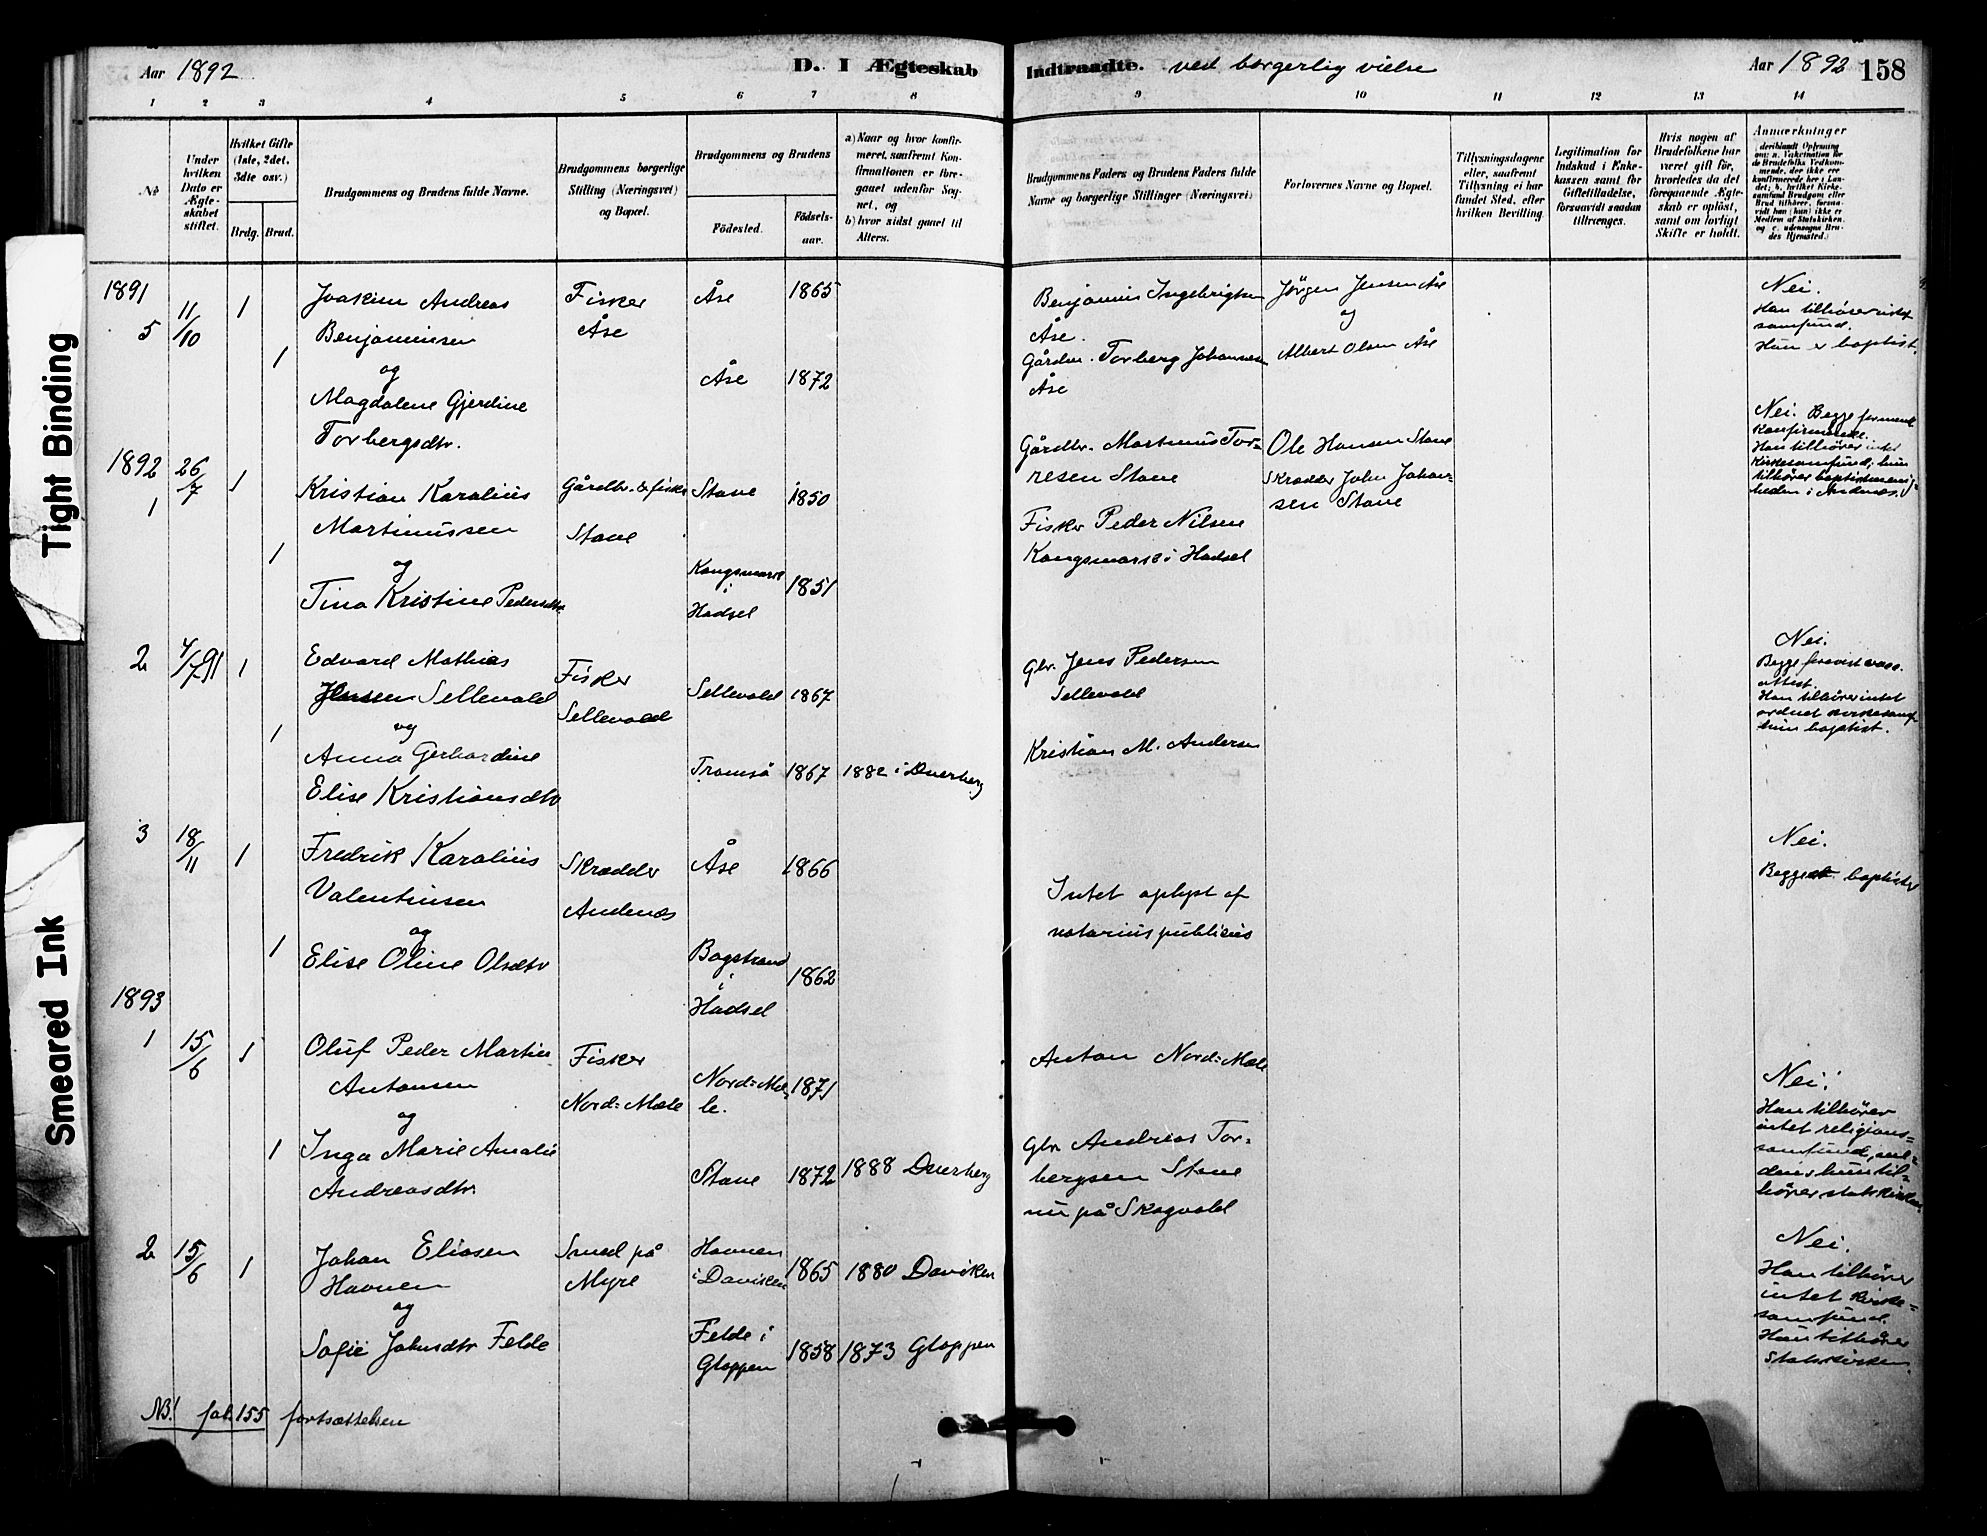 Aar 1892
D. I Ægteskab
Indtraadte. ved borgerlig vielse
Aar 1892
158
1 2 3 4 5 6 7 8 9 10 11 12 13 14
No
Under hvilken Dato er Ægteskabet stiftet.
Hvilket Gifte (1ste, 2det, 3die osv.)
Brdg. Brud.
Brudgommens og Brudens fulde Navne.
Brudgommens borgerlige Stilling (Næringsvei) og Bopæl.
Brudgommens og Brudens
Fødested.
Fødselsaar.
a) Naar og hvor konfirmeret, saafremt Konfirmationen er foregaaet udenfor Sognet, og
b) hvor sidst gaaet til Alters.
Brudgommens Faders og Brudens Faders fulde Navne og borgerlige Stillinger (Næringsvei)
Forlovernes Navne og Bopæl.
Tillysningsdagene eller, saafremt Tillysning ei har fundet Sted, efter hvilken Bevilling.
Legitimation for Indskud i Enkekassen samt for Giftetilladelse, forsaavidt saadan tiltrænges.
Hvis nogen af Brudefolkene har været gift før, hvorledes da det foregaaende Ægteskab er opløst, samt om lovligt Skifte er holdt.
Anmærkninger
(deriblandt Oplysning om: a. Vakcination for de Brudefolks Vedkommende, der ikke ere konfirmerede her i Landet; b. hvilket Kirkesamfund Brudgom eller Brud tilhører, forsaavidt han (hun) ikke er Medlem af Statskirken, og c. udensogns Brudes Hjemsted.)
1891
5 11/10 1
Joakim Andreas
Benjaminsen
og
1
Magdalene Gjerdine
Torbergsdtr.
Fisker
Åse
Åse 1865
Åse 1872
Benjamin Ingebrigtsen
Åse.
Gårdbr. Torberg Johannesen
Åse
Jörgen Jensen Åse
og
Albert Olsen Åse
Nei.
Han tilhører intet
samfund.
Hun er baptist.
1892
1 26/7 1
Kristian Karolius
Martinussen
og
1
Tina Kristine Pedersdtr
Gårdbr. & fisker
Stave
Stave 1850
Kongsmark
i
Hadsel
1851
Gårdbr. Martinus Tor-
resen Stave
Fisker Peder Nilsen
Kongsmark i Hadsel
Ole Hansen Stave
Skrædder John Johan-
sen Stave
Nei. Begge
Konfirmerede.
Han tilhører intet
kirkesamfund; hun
tilhører baptistmenig-
heden i Andenæs.
2 4/7 91 1
Edvard Mathias
Jensen Sellevold
og
1
Anna Gerhardine
Elise Kristiansdtr
Fisker
Sellevold
Sellevold 1867
Tromsö 1867 1882 i Dverberg
Gbr. Jens Pedersen
Sellevold
Kristian M. Andersen
Nei.
Begge forevist vacc.
attest.
Han tilhører intet
ordnet kirkesamf
hun baptist.
3 18/11 1
Fredrik Karolius
Valentinsen
og
1
Elise Oline Olsdtr
Skrædder
Andenæs
Åse 1866
Bogstrand
i
Hadsel
1862
Intet oplyst af
notarius publicus
Nei.
Begge baptister
1893
1 15/6 1
Oluf Peder Martin
Antonsen
og
1
Inga Marie Amalie
Andreasdtr.
Fisker
Nord-Mæle
Nord-Mæ-
le.
1871
Stave 1872 1888 Dverberg
Anton Nord-Mæle
Gbr. Andreas Tor-
bergsen Stave
nu på Skogvold
Nei!
Han tilhører
intet religions-
samfund, me-
dens hun til-
hører statskirken
2 15/6 1
Johan Eliasen
Havnen
og
Sofie Johnsdtr Felde
Smed på
Myre
Havnen
i Daviken
1865 1880 Daviken
Felde i
Gloppen
1858 1873 Gloppen
Nei.
Han tilhører
intet kirke-
samfund.
Hun tilhører
Statskirken.
NB! fol. 155 fortsættelsen
Tight Binding
Smeared Ink